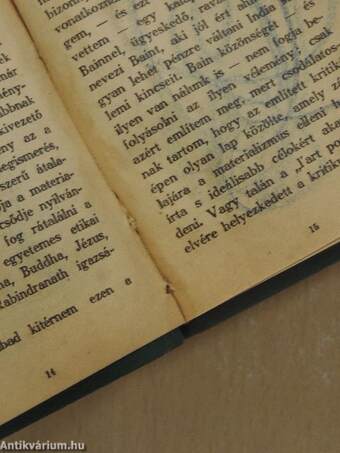 nár
ény-
bbnak
kivezető
ny az a
egismerés,
szerű átala-
ója a materia-
csődje nyilván-
fog rátalálni a
egyetemes etikai
ha, Buddha, Jézus,
Rabindranath igazsá-
bad kitérnem ezen a
14
bizonn
gem, — és ezt
vettem — egy kalan
Bainnel, ügyeskedő, ravas
nevezi Baint, aki jól ért ahho
gyan lehet pénzre váltani India
lemi kincseit. Bain közönségét —
ilyen van nálunk is — nem fogja be-
folyásolni az ilyen vélemény, csak
azért említem meg, mert csodálatos-
nak tartom, hogy az említett kritik
épen olyan lap közölte, amely zá
lajára a materializmus elleni h
írta s ideálisabb célokért aka
deni. Vagy talán a „l'art po
elvére helyezkedett a kritik
15
Antikvárium.hu